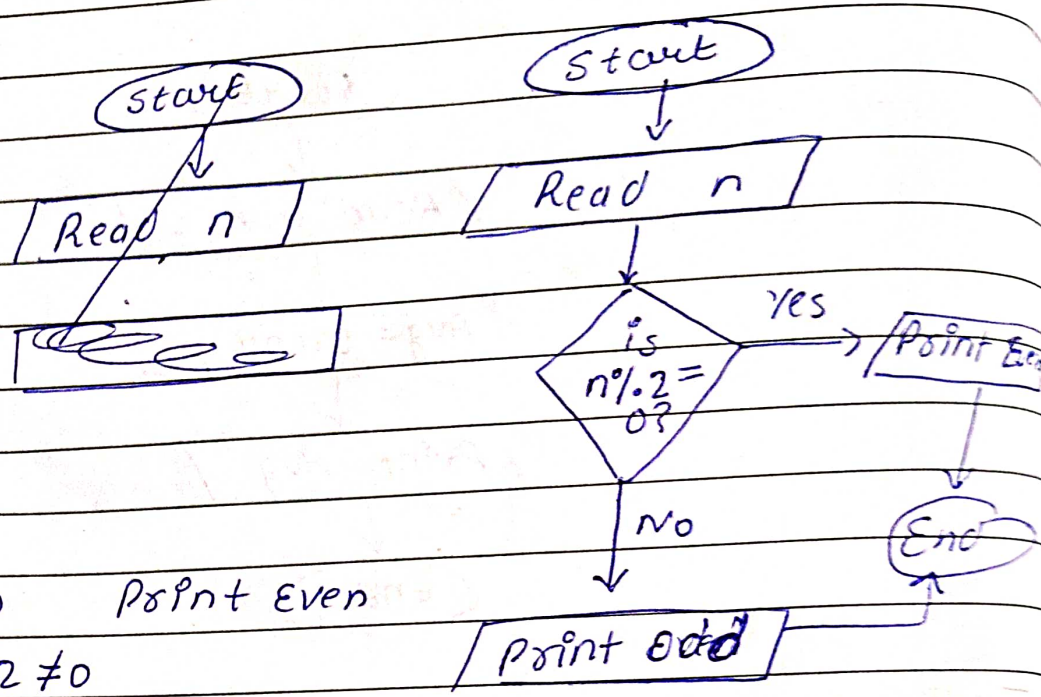 Start
Read n
Start
Read n
is
n%2=
0?
Yes
Print
No
End
Print Even
2 ≠0
Print odd